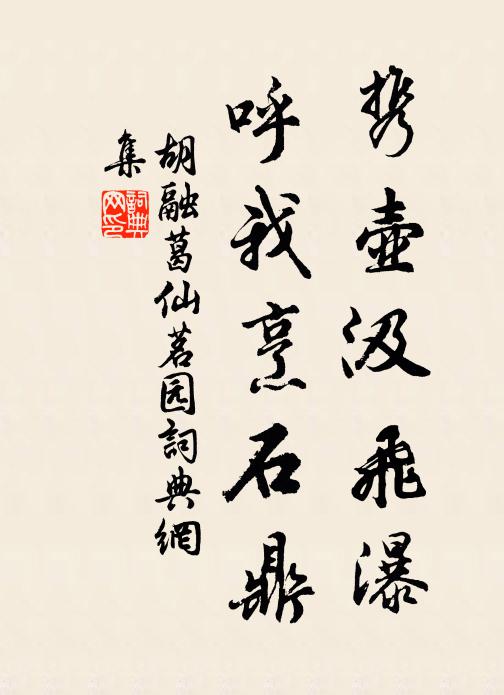 携壺汲飛瀑
呼我烹石鼎
胡融葛仙茗园詞典網
集
詞典网印